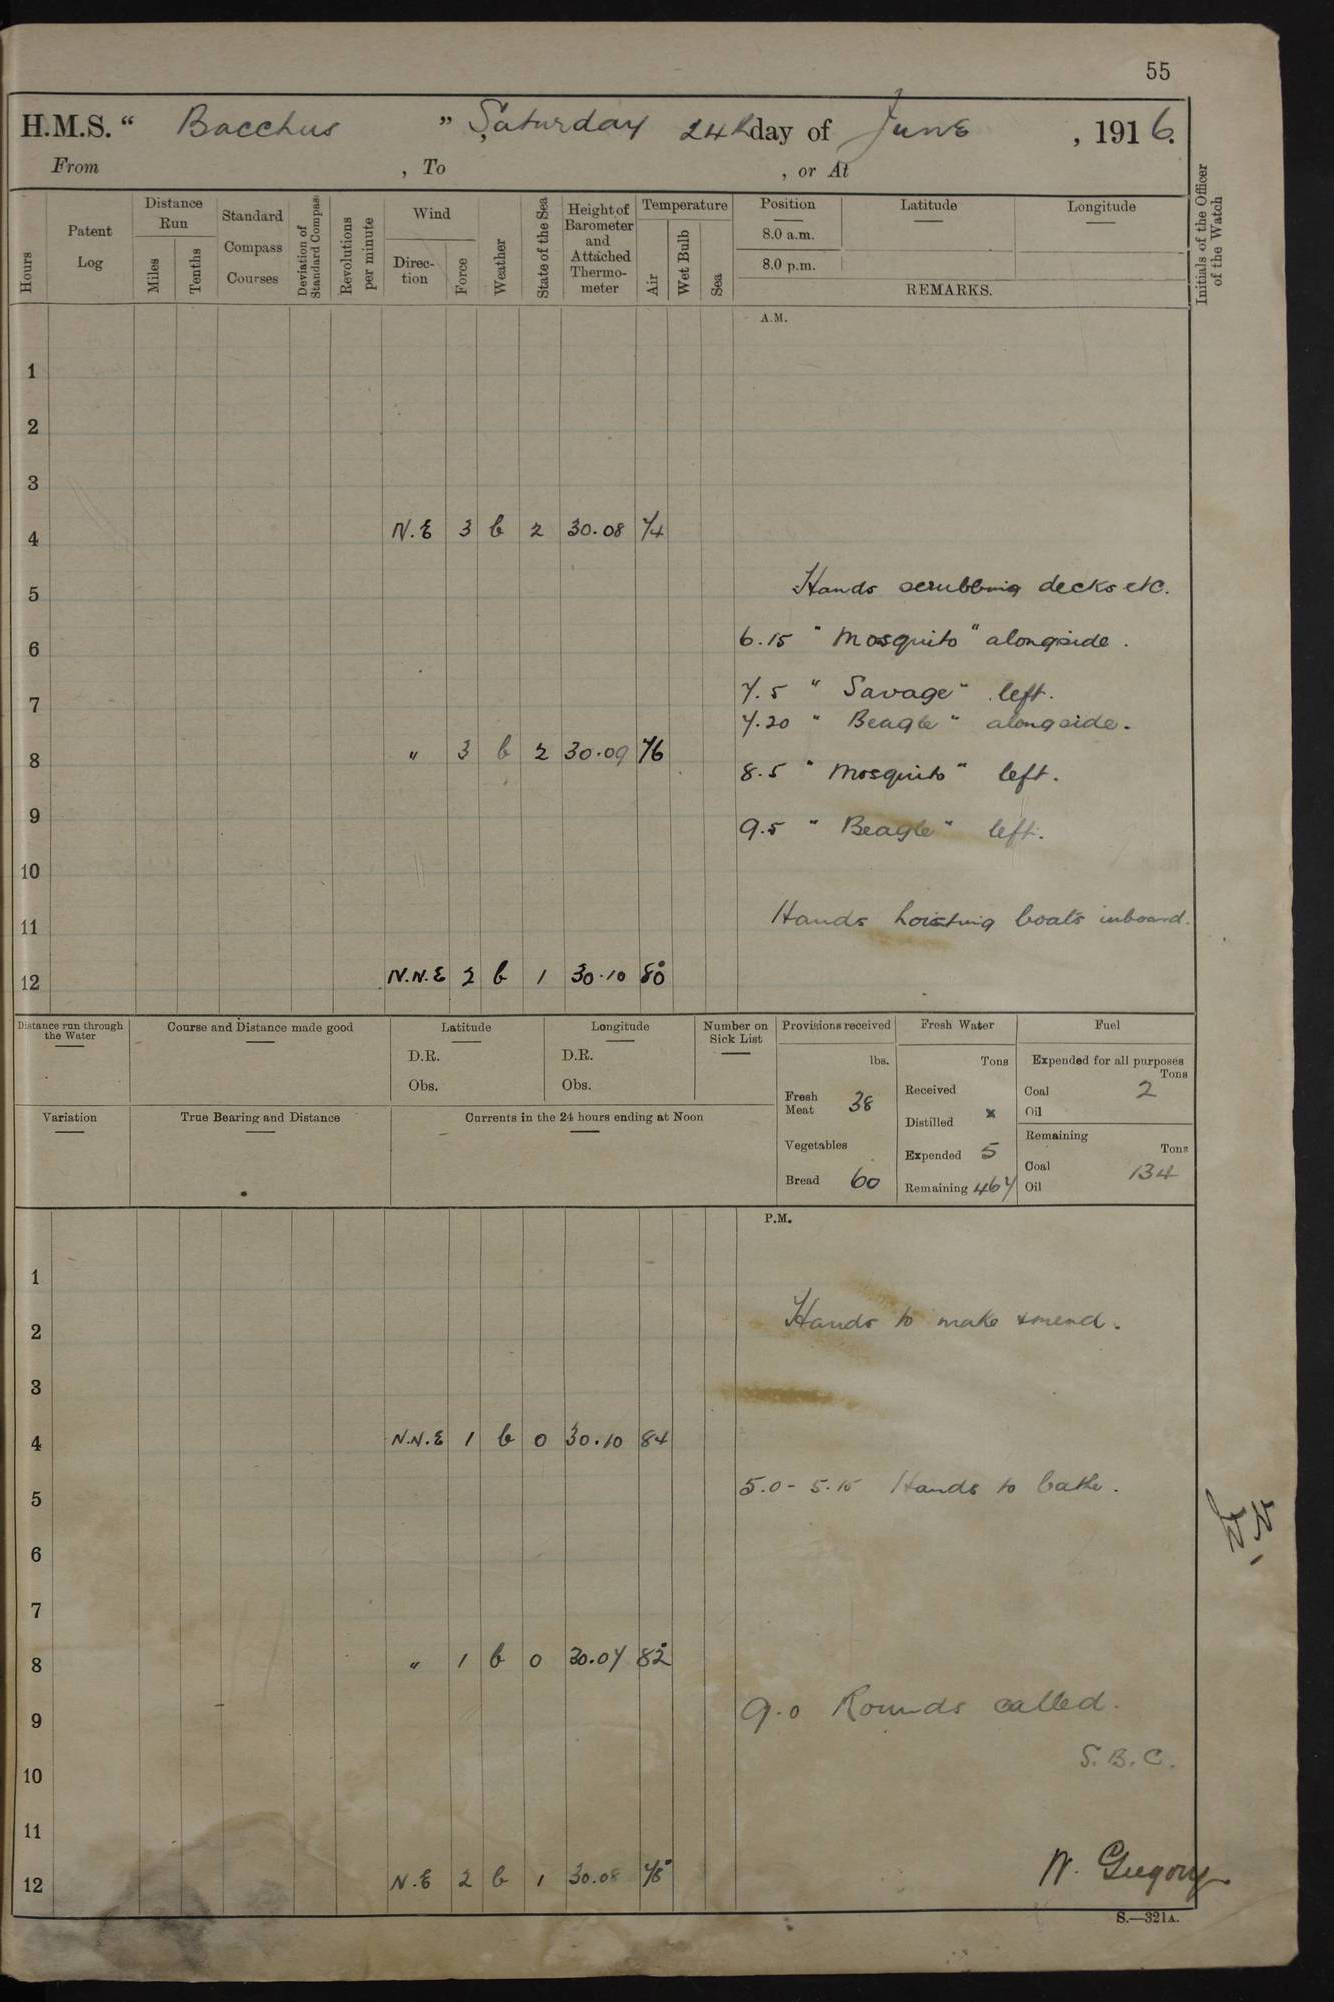 55
H.M.S. “ Bacchus ” Saturday 24th day of June , 1916.
From , To , or At
Hours
Patent Log
Distance Run
Miles
Tenths
Standard Compass Courses
Deviation of Standard Compass
Revolutions per minute
Wind
Direction
Force
Weather
State of the Sea
Height of Barometer and Attached Thermometer
Temperature
Air
Wet Bulb
Sea
Position
8.0 a.m.
8.0 p.m.
Latitude
Longitude
REMARKS.
Initials of the Officer of the Watch
A.M.
1
2
3
4 N.E 3 b 2 30.08 74
5 Hands scrubbing decks etc.
6 6.15 "Mosquito" alongside.
7 7.5 "Savage" left.
7.20 "Beagle" alongside.
8 " 3 b 2 30.09 76
8.5 "Mosquito" left.
9 9.5 "Beagle" left.
10
11 Hands hoisting boats inboard.
12 N.N.E 2 b 1 30.10 80°
Distance run through the Water
Course and Distance made good
Latitude
D.R.
Obs.
Longitude
D.R.
Obs.
Number on Sick List
Provisions received
lbs.
Fresh Meat 38
Vegetables
Bread 60
Fresh Water
Tons
Received
Distilled x
Expended 5
Remaining 467
Fuel
Expended for all purposes
Tons
Coal 2
Oil
Remaining
Tons
Coal 134
Oil
Variation
True Bearing and Distance
Currents in the 24 hours ending at Noon
P.M.
1
2 Hands to make & mend.
3
4 N.N.E 1 b 0 30.10 84
5 5.0 - 5.15 Hands to bathe.
6
7
8 " 1 b 0 30.07 82°
9 9.0 Rounds called.
10 S.B.C.
11
12 N.E 2 b 1 30.08 78°
N. Gregory
S.—321A.